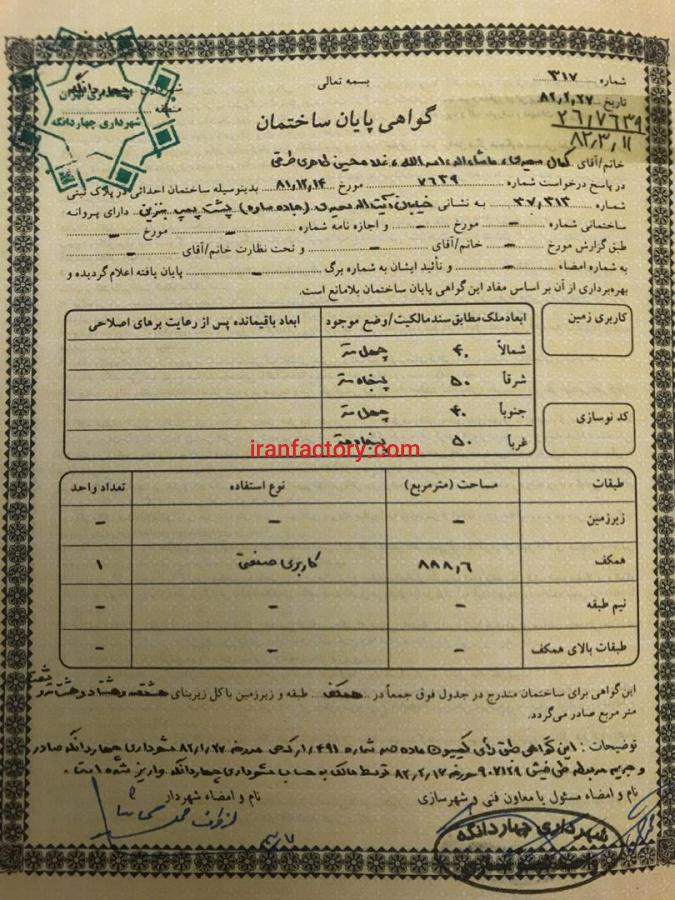 بسمه تعالی
شماره ۳۱۷
تاریخ ۸۲,۲,۲۷
۲۶,۷۶۳۹
۸۲,۳,۱۱
شهرداری چهاردانگه
منطقه
شهرداری تهران
شهرداری چهاردانگه
گواهی پایان ساختمان
خانم/آقای کمال
در پاسخ درخواست شماره ۷۶۳۹ مورخ ۸۱,۱۲,۱۴ بدینوسیله ساختمان احداثی در پلاک ثبتی
شماره ۳۷,۳۱۳ به نشانی خیابان آیت اله سعیدی (جاده ساوه) پشت پمپ بنزین دارای پروانه
ساختمانی شماره – مورخ – و اجازه نامه شماره – مورخ –
طبق گزارش مورخ – خانم/آقای – و تحت نظارت خانم/آقای –
به شماره امضاء – و تأئید ایشان به شماره برگ – پایان یافته اعلام گردیده و
بهره‌برداری از آن بر اساس مفاد این گواهی پایان ساختمان بلامانع است.
کاربری زمین
ابعاد ملک مطابق سند مالکیت/وضع موجود
ابعاد باقیمانده پس از رعایت برهای اصلاحی
شمالاً ۴۰ چهل متر
شرقاً ۵۰ پنجاه متر
کد نوسازی
جنوباً ۴۰ چهل متر
غرباً ۵۰ پنجاه متر
iranfactory.com
طبقات مساحت (مترمربع) نوع استفاده تعداد واحد
زیرزمین – – –
همکف ۸۸۸,۶ کاربری صنعتی ۱
نیم طبقه – – –
طبقات بالای همکف – – –
این گواهی برای ساختمان مندرج در جدول فوق جمعاً در همکف طبقه و زیرزمین با کل زیربنای هشتصد و هشتاد و هشت
متر مربع صادر می‌گردد.
توضیحات : این گواهی طبق رأی کمیسیون ماده صد شماره مورخه ۸۲,۱,۲۷ شهرداری چهاردانگه صادر
و جریمه مربوطه طی فیش ۹۰۷۱۲۹ مورخه ۸۲,۲,۱۷ توسط مالک به حساب شهرداری چهاردانگه واریز شده است.
نام و امضاء مسئول یا معاون فنی و شهرسازی
نام و امضاء شهردار
شهرداری چهاردانگه